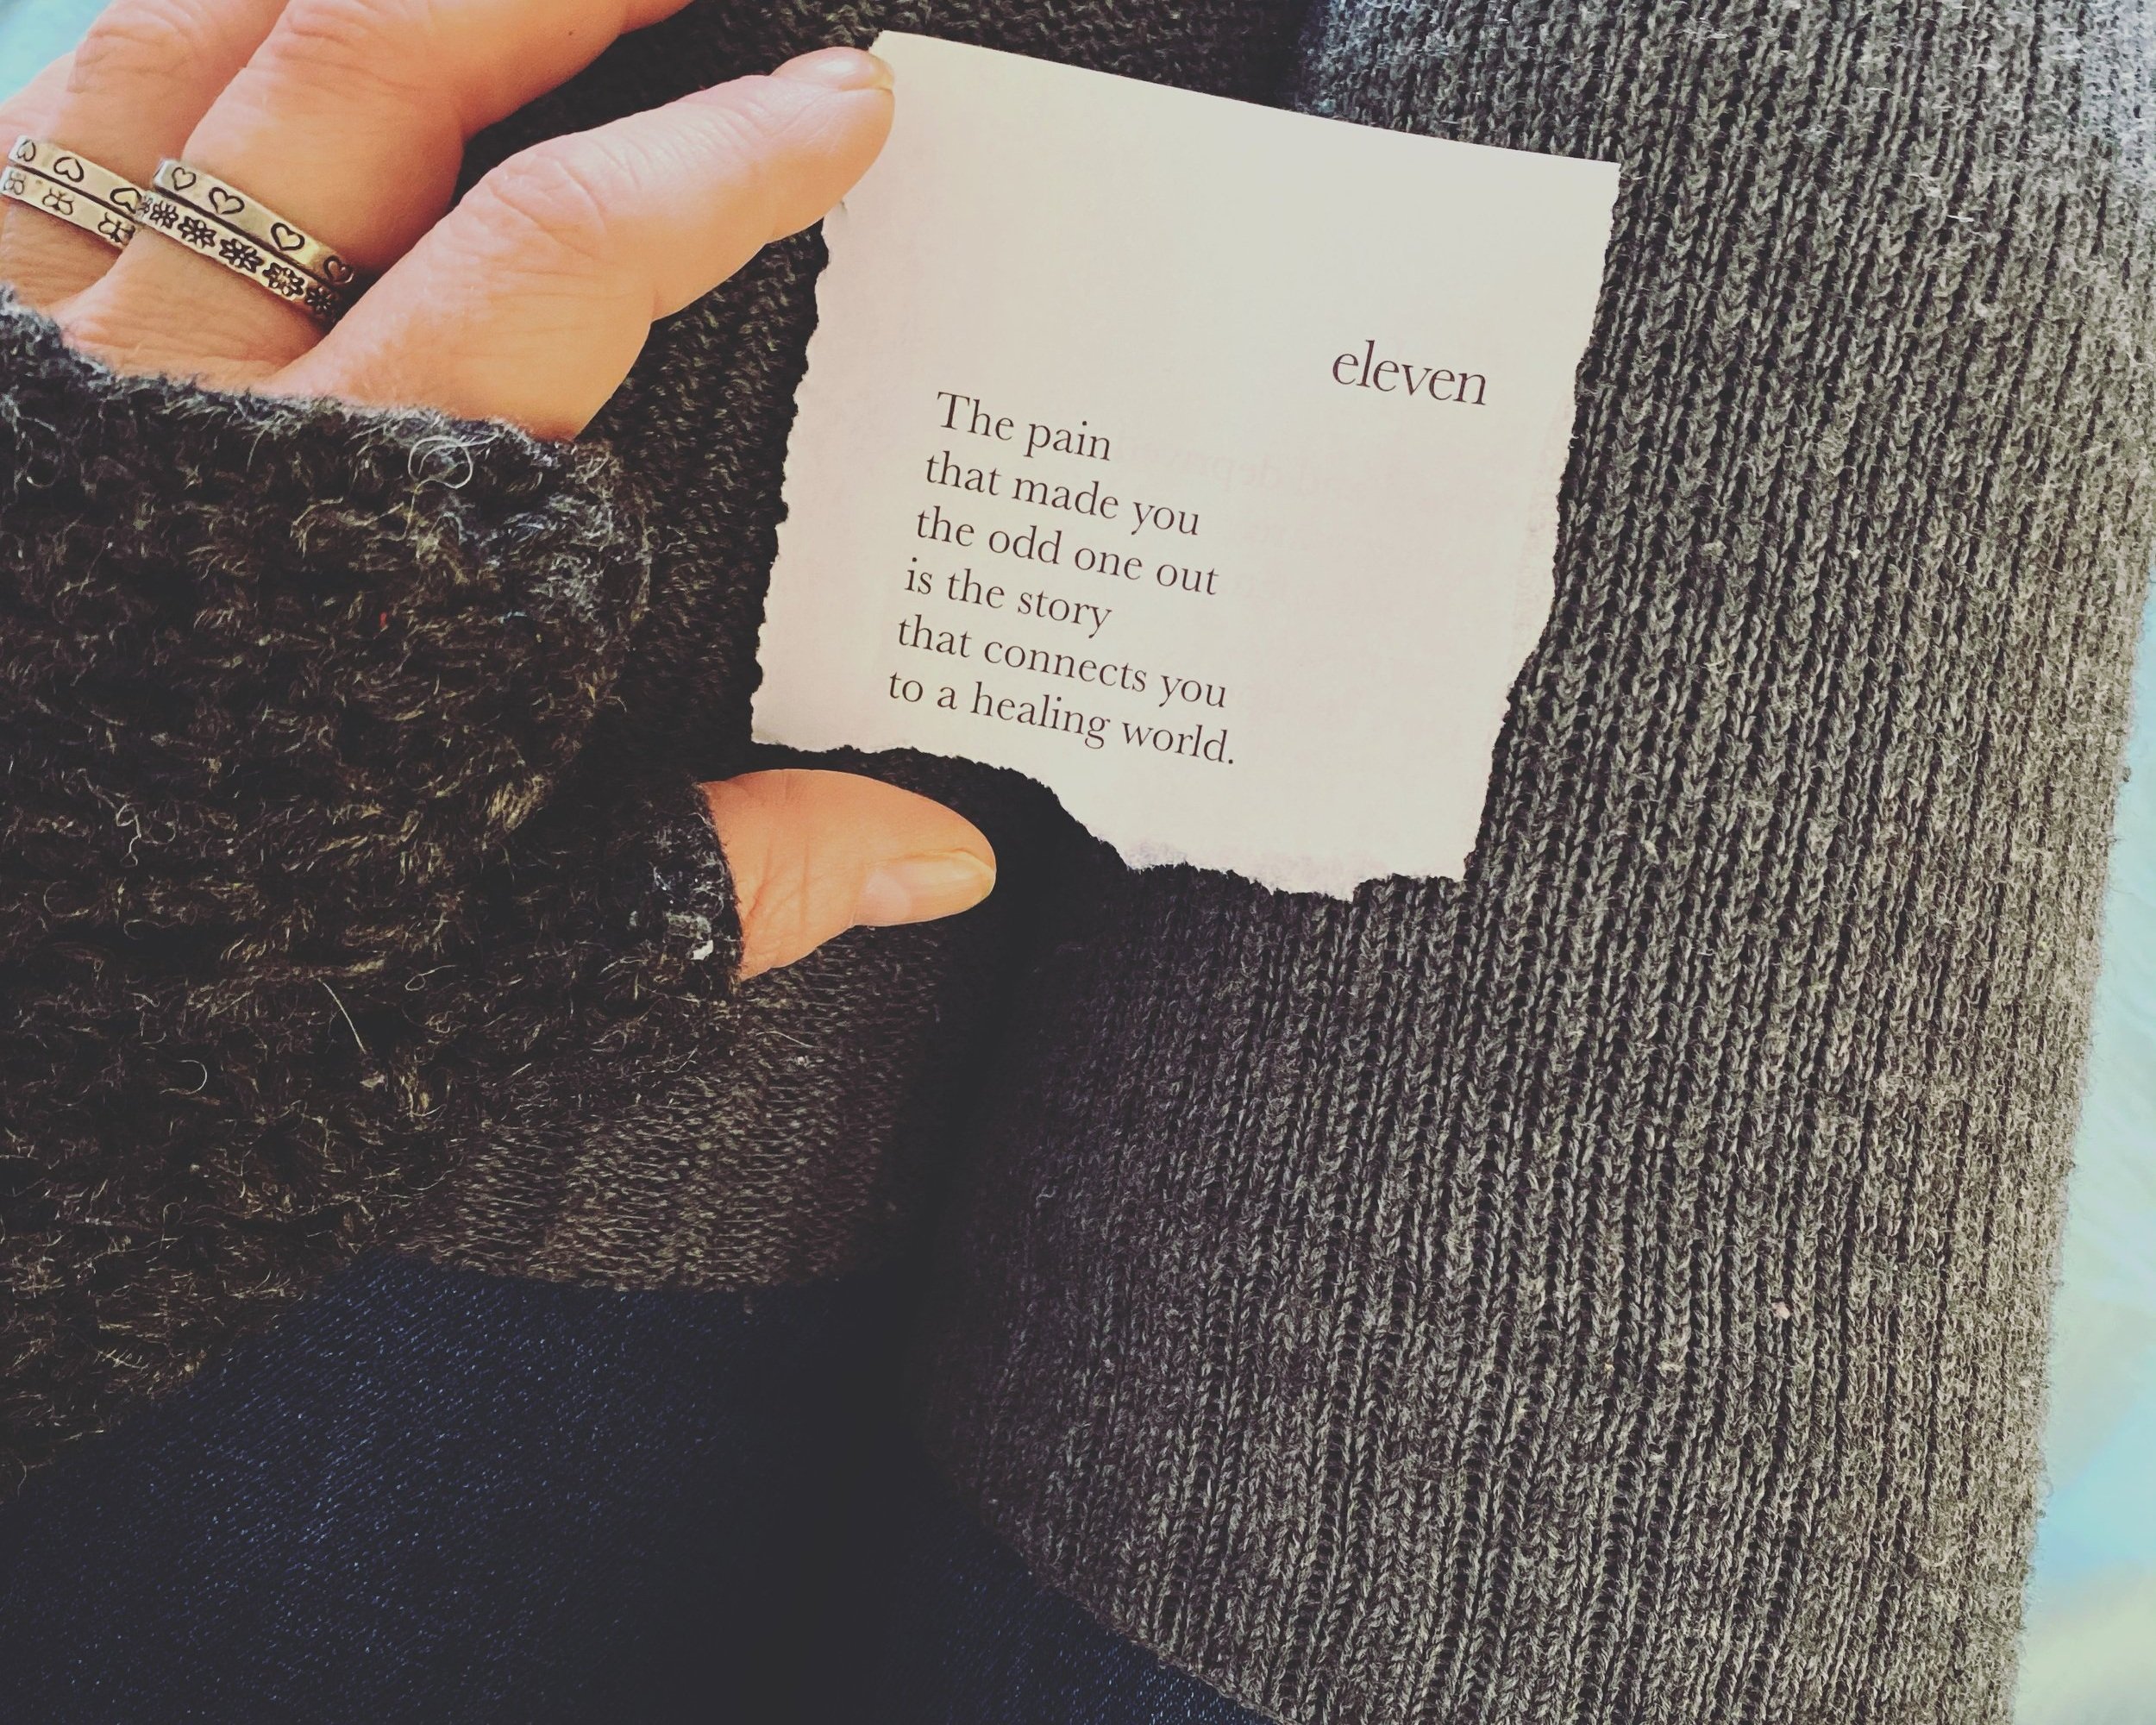 eleven
The pain
that made you
the odd one out
is the story
that connects you
to a healing world.